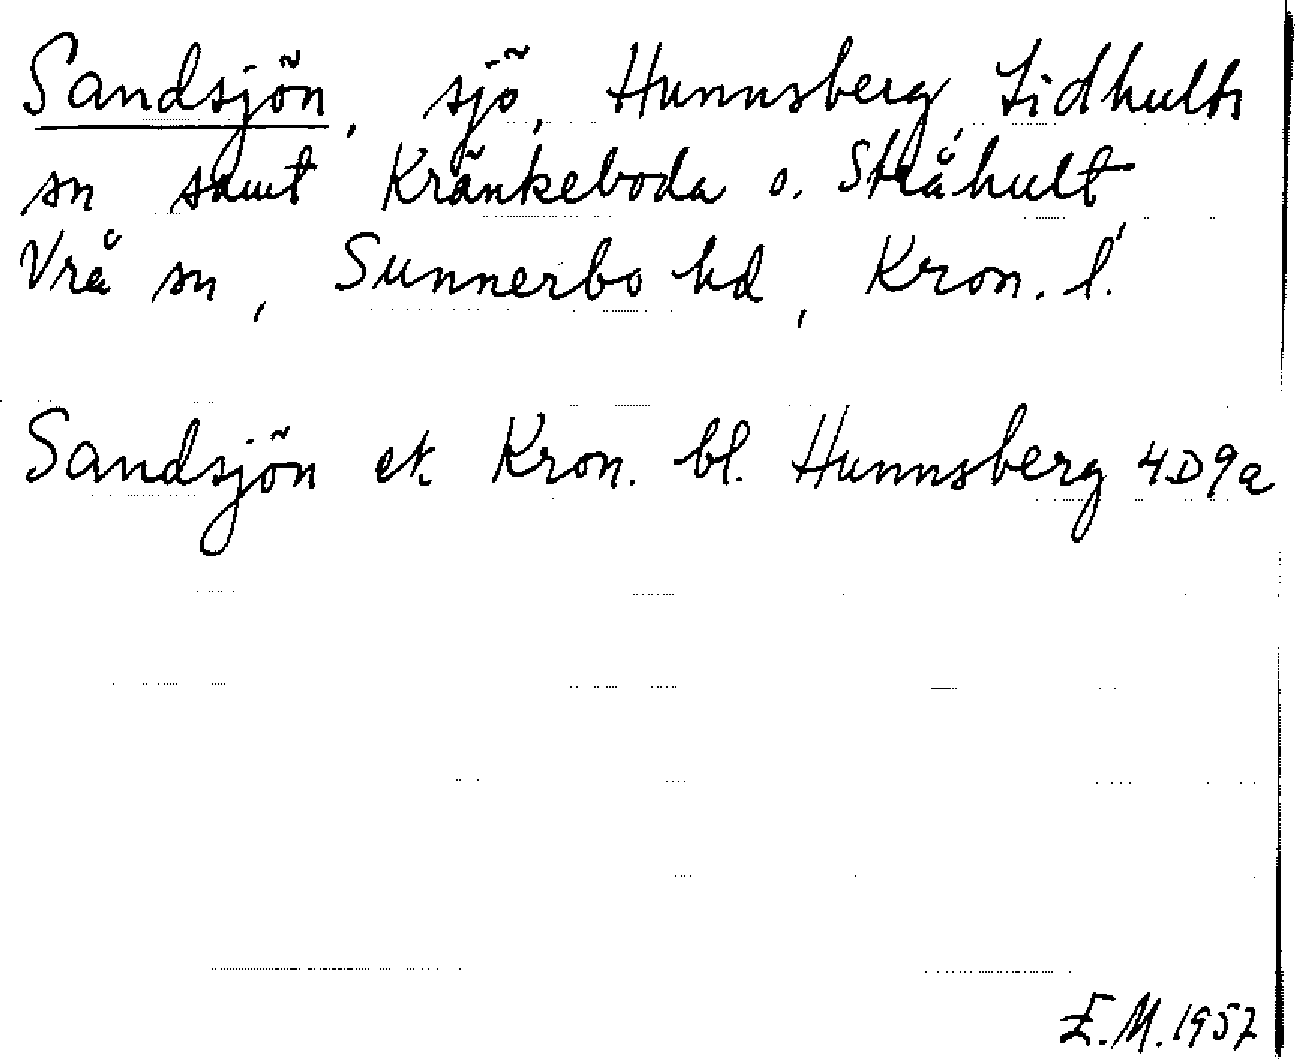 Sandsjön, sjö, Hunnsberg, Lidhults
sn samt Kränkeboda o. Stråhult,
Vrå sn, Sunnerbo hd, Kron. l.
Sandsjön ek Kron. bl. Hunnsberg 4D9a
E.M. 1957